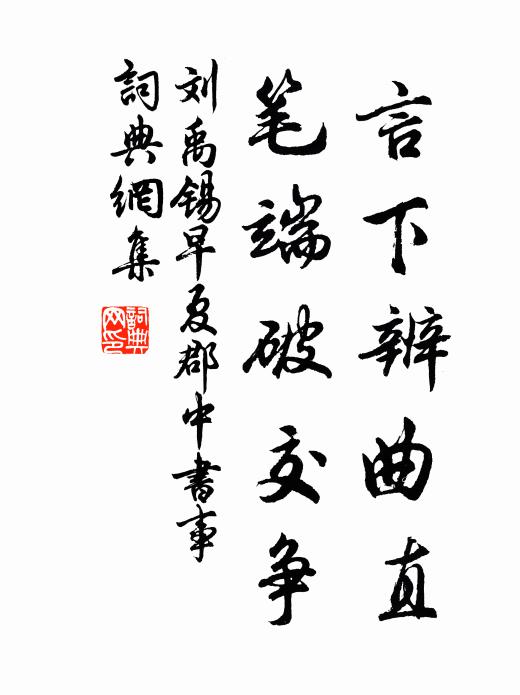 言下辨曲直
笔端破交争
刘禹锡早夏郡中書事
詞典網集
詞典网印